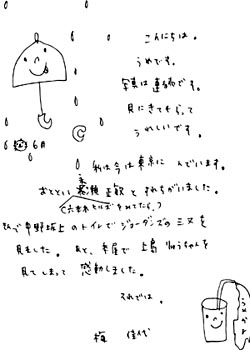 こんにちは。
うめです。
写真は
見にきてもらって
うれしいです。
6月6日
私は今は東京に んでいます。
おととい 正敏とすれちがいました。
(六本木ヒルズをみてたら。)
そんで中野坂上のトイレでジョーダンズの三又を
見ました。 あと、本屋で上島りゅうちゃんを
見てしまって 感動しました。
それでは。
梅 佳代